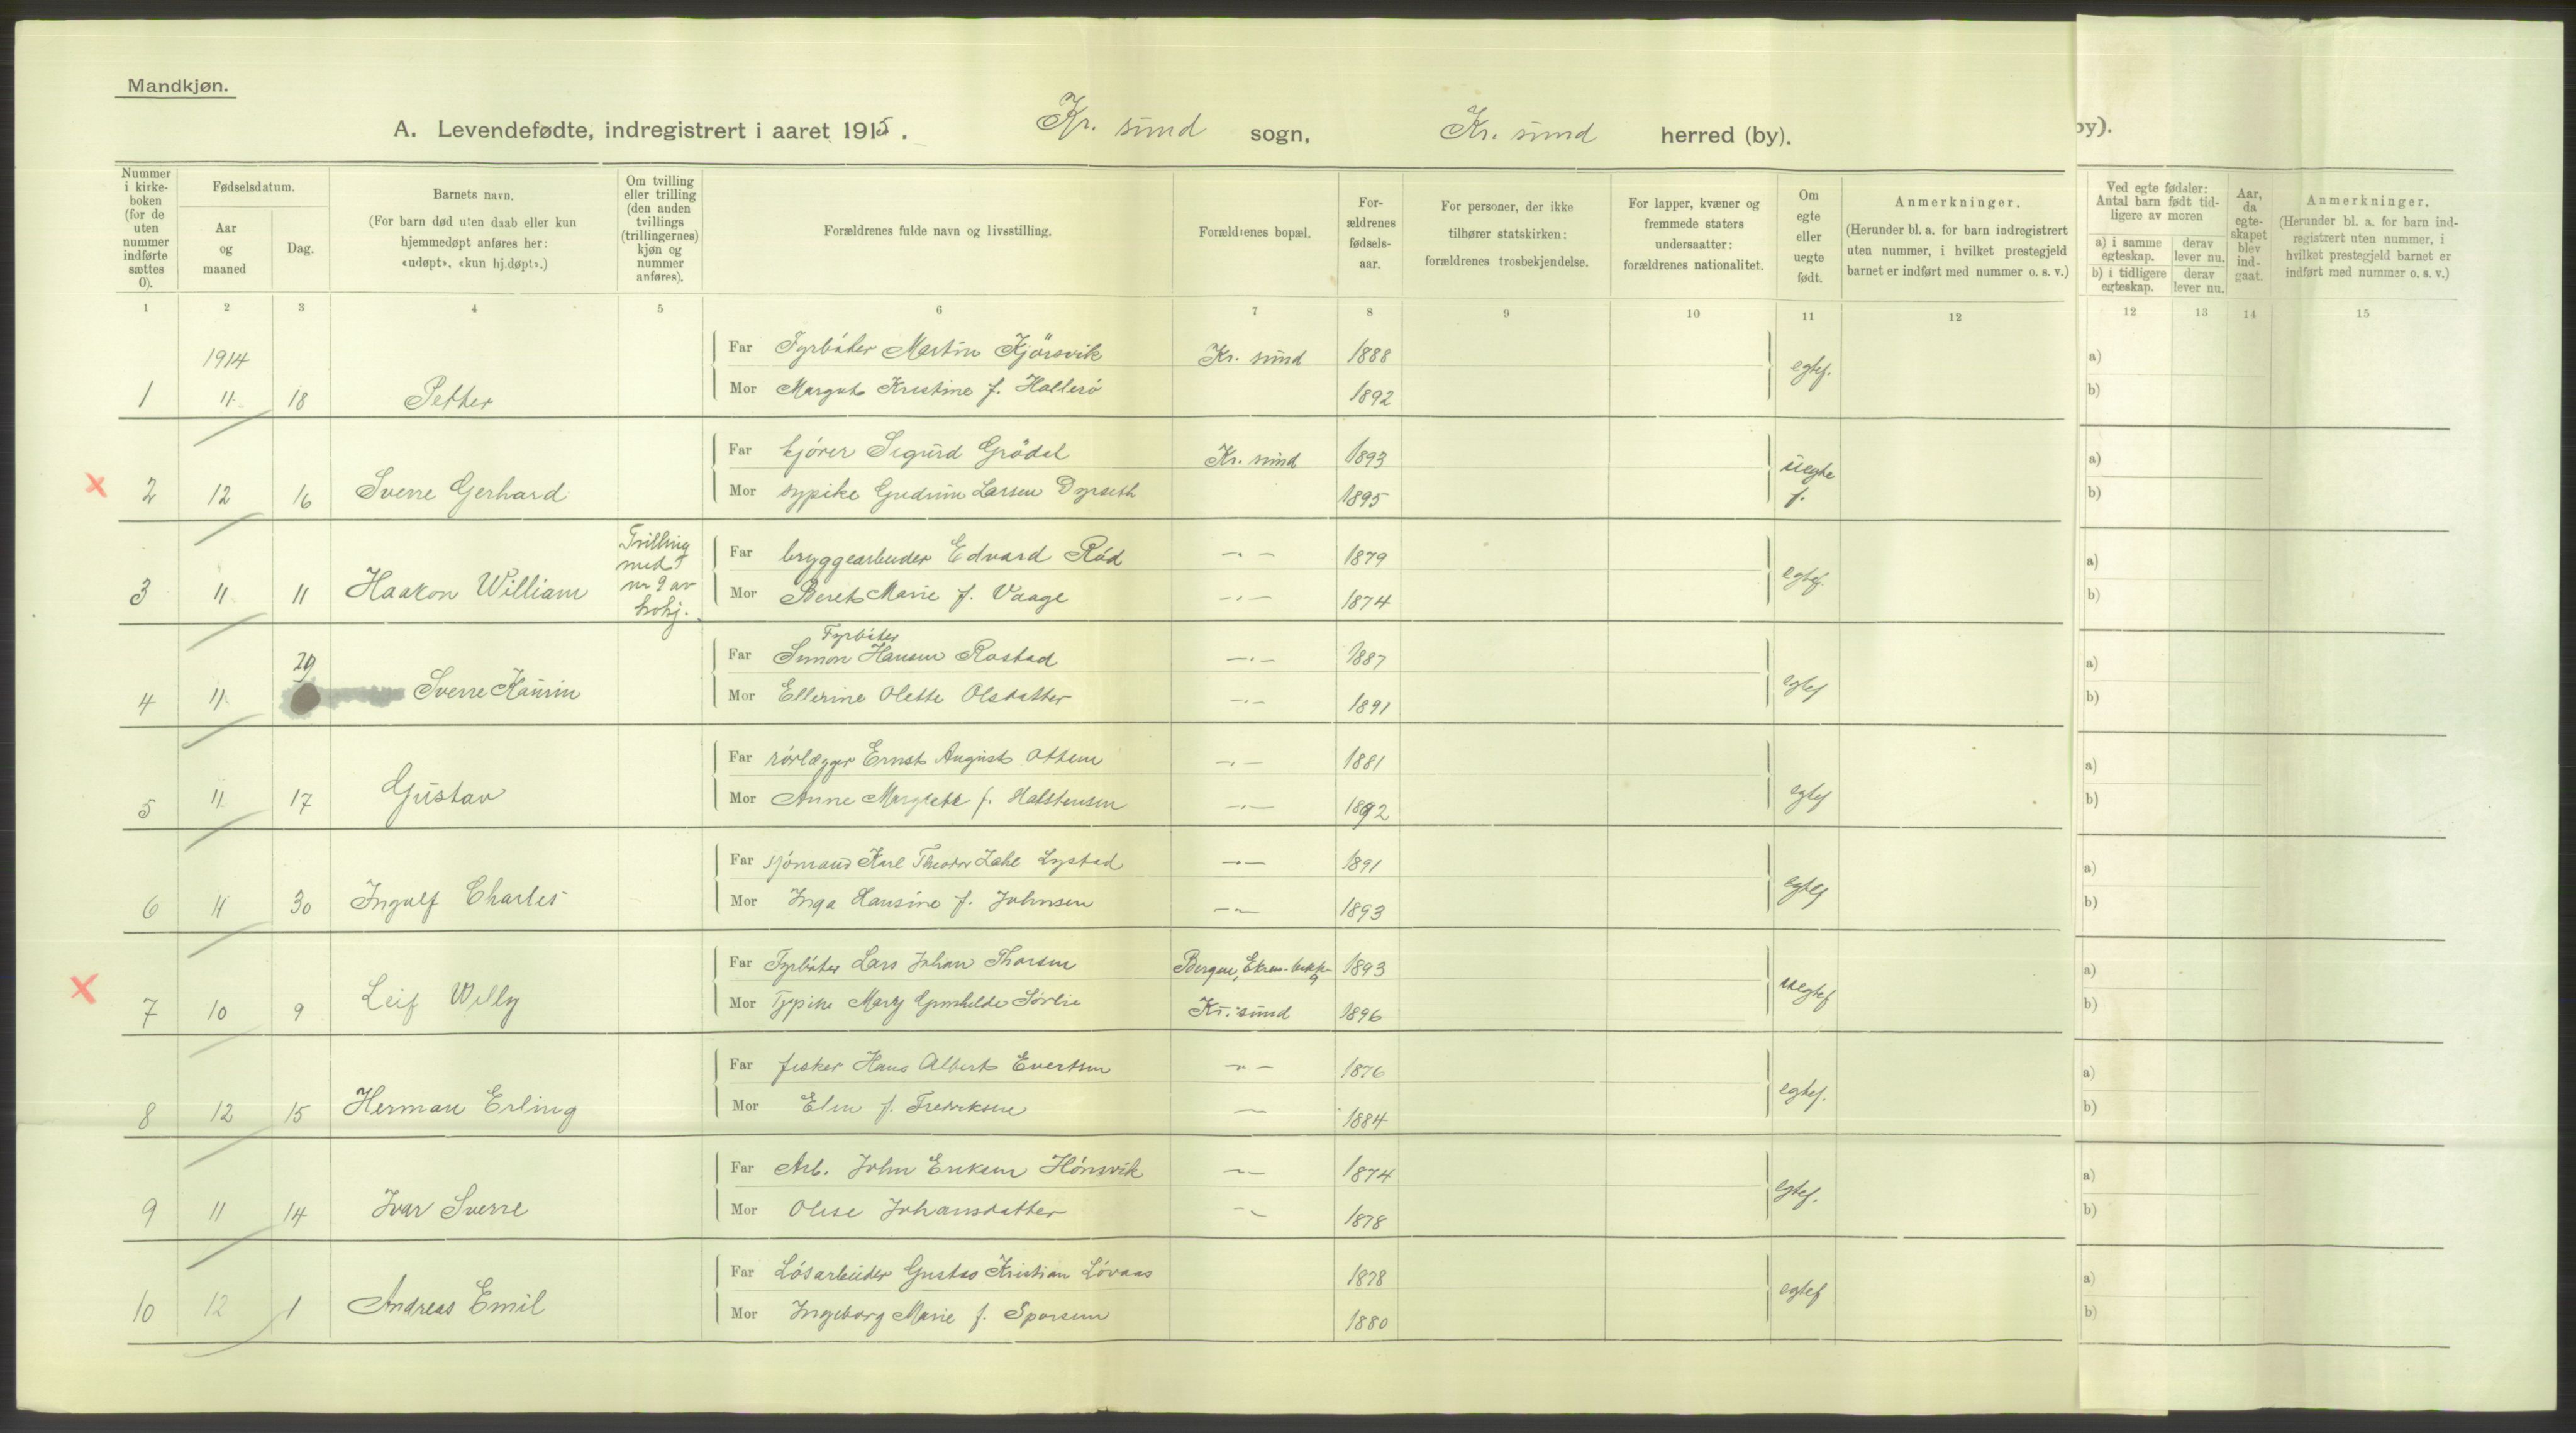 Mandkjøn.
A. Levendefødte, indregistrert i aaret 1915. Kr. sund sogn, Kr. sund herred (by).
by).
Nummer i kirkeboken (for de uten nummer indførte sættes 0).
Fødselsdatum.
Aar og maaned
Dag.
Barnets navn.
(For barn død uten daab eller kun hjemmedøpt anføres her: «udøpt», «kun hj.døpt».)
Om tvilling eller trilling (den anden tvillings (trillingernes) kjøn og nummer anføres).
Forældrenes fulde navn og livsstilling.
Forældrenes bopæl.
Forældrenes fødselsaar.
For personer, der ikke tilhører statskirken: forældrenes trosbekjendelse.
For lapper, kvæner og fremmede staters undersaatter: forældrenes nationalitet.
Om egte eller uegte født.
Anmerkninger.
(Herunder bl. a. for barn indregistrert uten nummer, i hvilket prestegjeld barnet er indført med nummer o. s. v.)
Ved egte fødsler: Antal barn født tidligere av moren
a) i samme egteskap. derav lever nu.
b) i tidligere egteskap. derav lever nu.
Aar, da egteskapet blev indgaat.
Anmerkninger.
(Herunder bl. a. for barn indregistrert uten nummer, i hvilket prestegjeld barnet er indført med nummer o. s. v.)
1 2 3 4 5 6 7 8 9 10 11 12 12 13 14 15
1914
Far Fyrbøter Martin Kjørsvik Kr. sund 1888 egtef. a)
1 11 18 Petter Mor Margit Kristine f. Hallerö 1892 b)
Far kjører Sigurd Grödal Kr. sund 1893 uegte f. a)
2 12 16 Sverre Gerhard Mor sypike Gudrun Larsen Dyrseth 1895 b)
Trilling med nr 9 av kvkj.
Far bryggearbeider Edvard Rød —„— 1879 egtef. a)
3 11 11 Haakon William Mor Beret Marie f. Vaage —„— 1874 b)
Fyrbøter
29 Far Simon Hansen Rostad —„— 1887 egtef a)
4 11 Sverre Kaurin Mor Ellerine Olette Olsdatter —„— 1891 b)
Far rørlægger Ernst August Ottem —„— 1881 egtef a)
5 11 17 Gustav Mor Anne Margrete f. Halstensen —„— 1892 b)
Far sjømand Karl Theodor Zahl Lystad —„— 1891 egtef a)
6 11 30 Ingolf Charles Mor Inga Hansine f. Johnsen —„— 1893 b)
Far Fyrbøter Lars Johan Thorsen Bergen, 1893 uegtef a)
7 10 9 Leif Willy Mor Sypike Mary Gunhilde Sørlie Kr. sund 1896 b)
Far fisker Hans Albert Evertsen —„— 1876 egtef. a)
8 12 15 Herman Erling Mor Elen f. Fredriksen —„— 1884 b)
Far Arb. John Eriksen Hönsvik —„— 1874 egtef. a)
9 11 14 Ivar Sverre Mor Olise Johansdatter —„— 1878 b)
Far Løsarbeider Gustav Kristian Løvaas 1878 egtef a)
10 12 1 Andreas Emil Mor Ingeborg Marie f. Sporsem 1880 b)